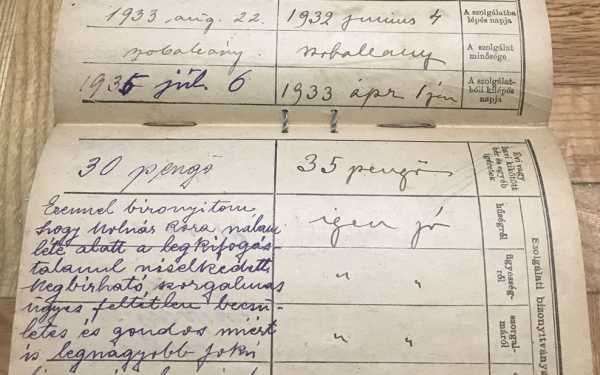 1933 aug. 22. 1932 junius 4 A szolgálatba lépés napja
szobaleány. szobaleany A szolgálat minősége
1935 júl. 6 1933 ápr 1jén A szolgálat-ból kilépés napja
30 pengő 35 pengő Évi vagy havi kikötött bér és egyéb igéretek
Ezennel bizonyitom
hogy Molnár Kora nálam
léte alatt a legkifogás-
talanul viselkedett
Megbirható, szorgalmas
ügyes feltétlen becsü-
letes és gondos miért
is legnagyobb fokú
igen jó hűségről
" " ügyesség-ről
" " szorgal-máról
Szolgálati bizonyítvány